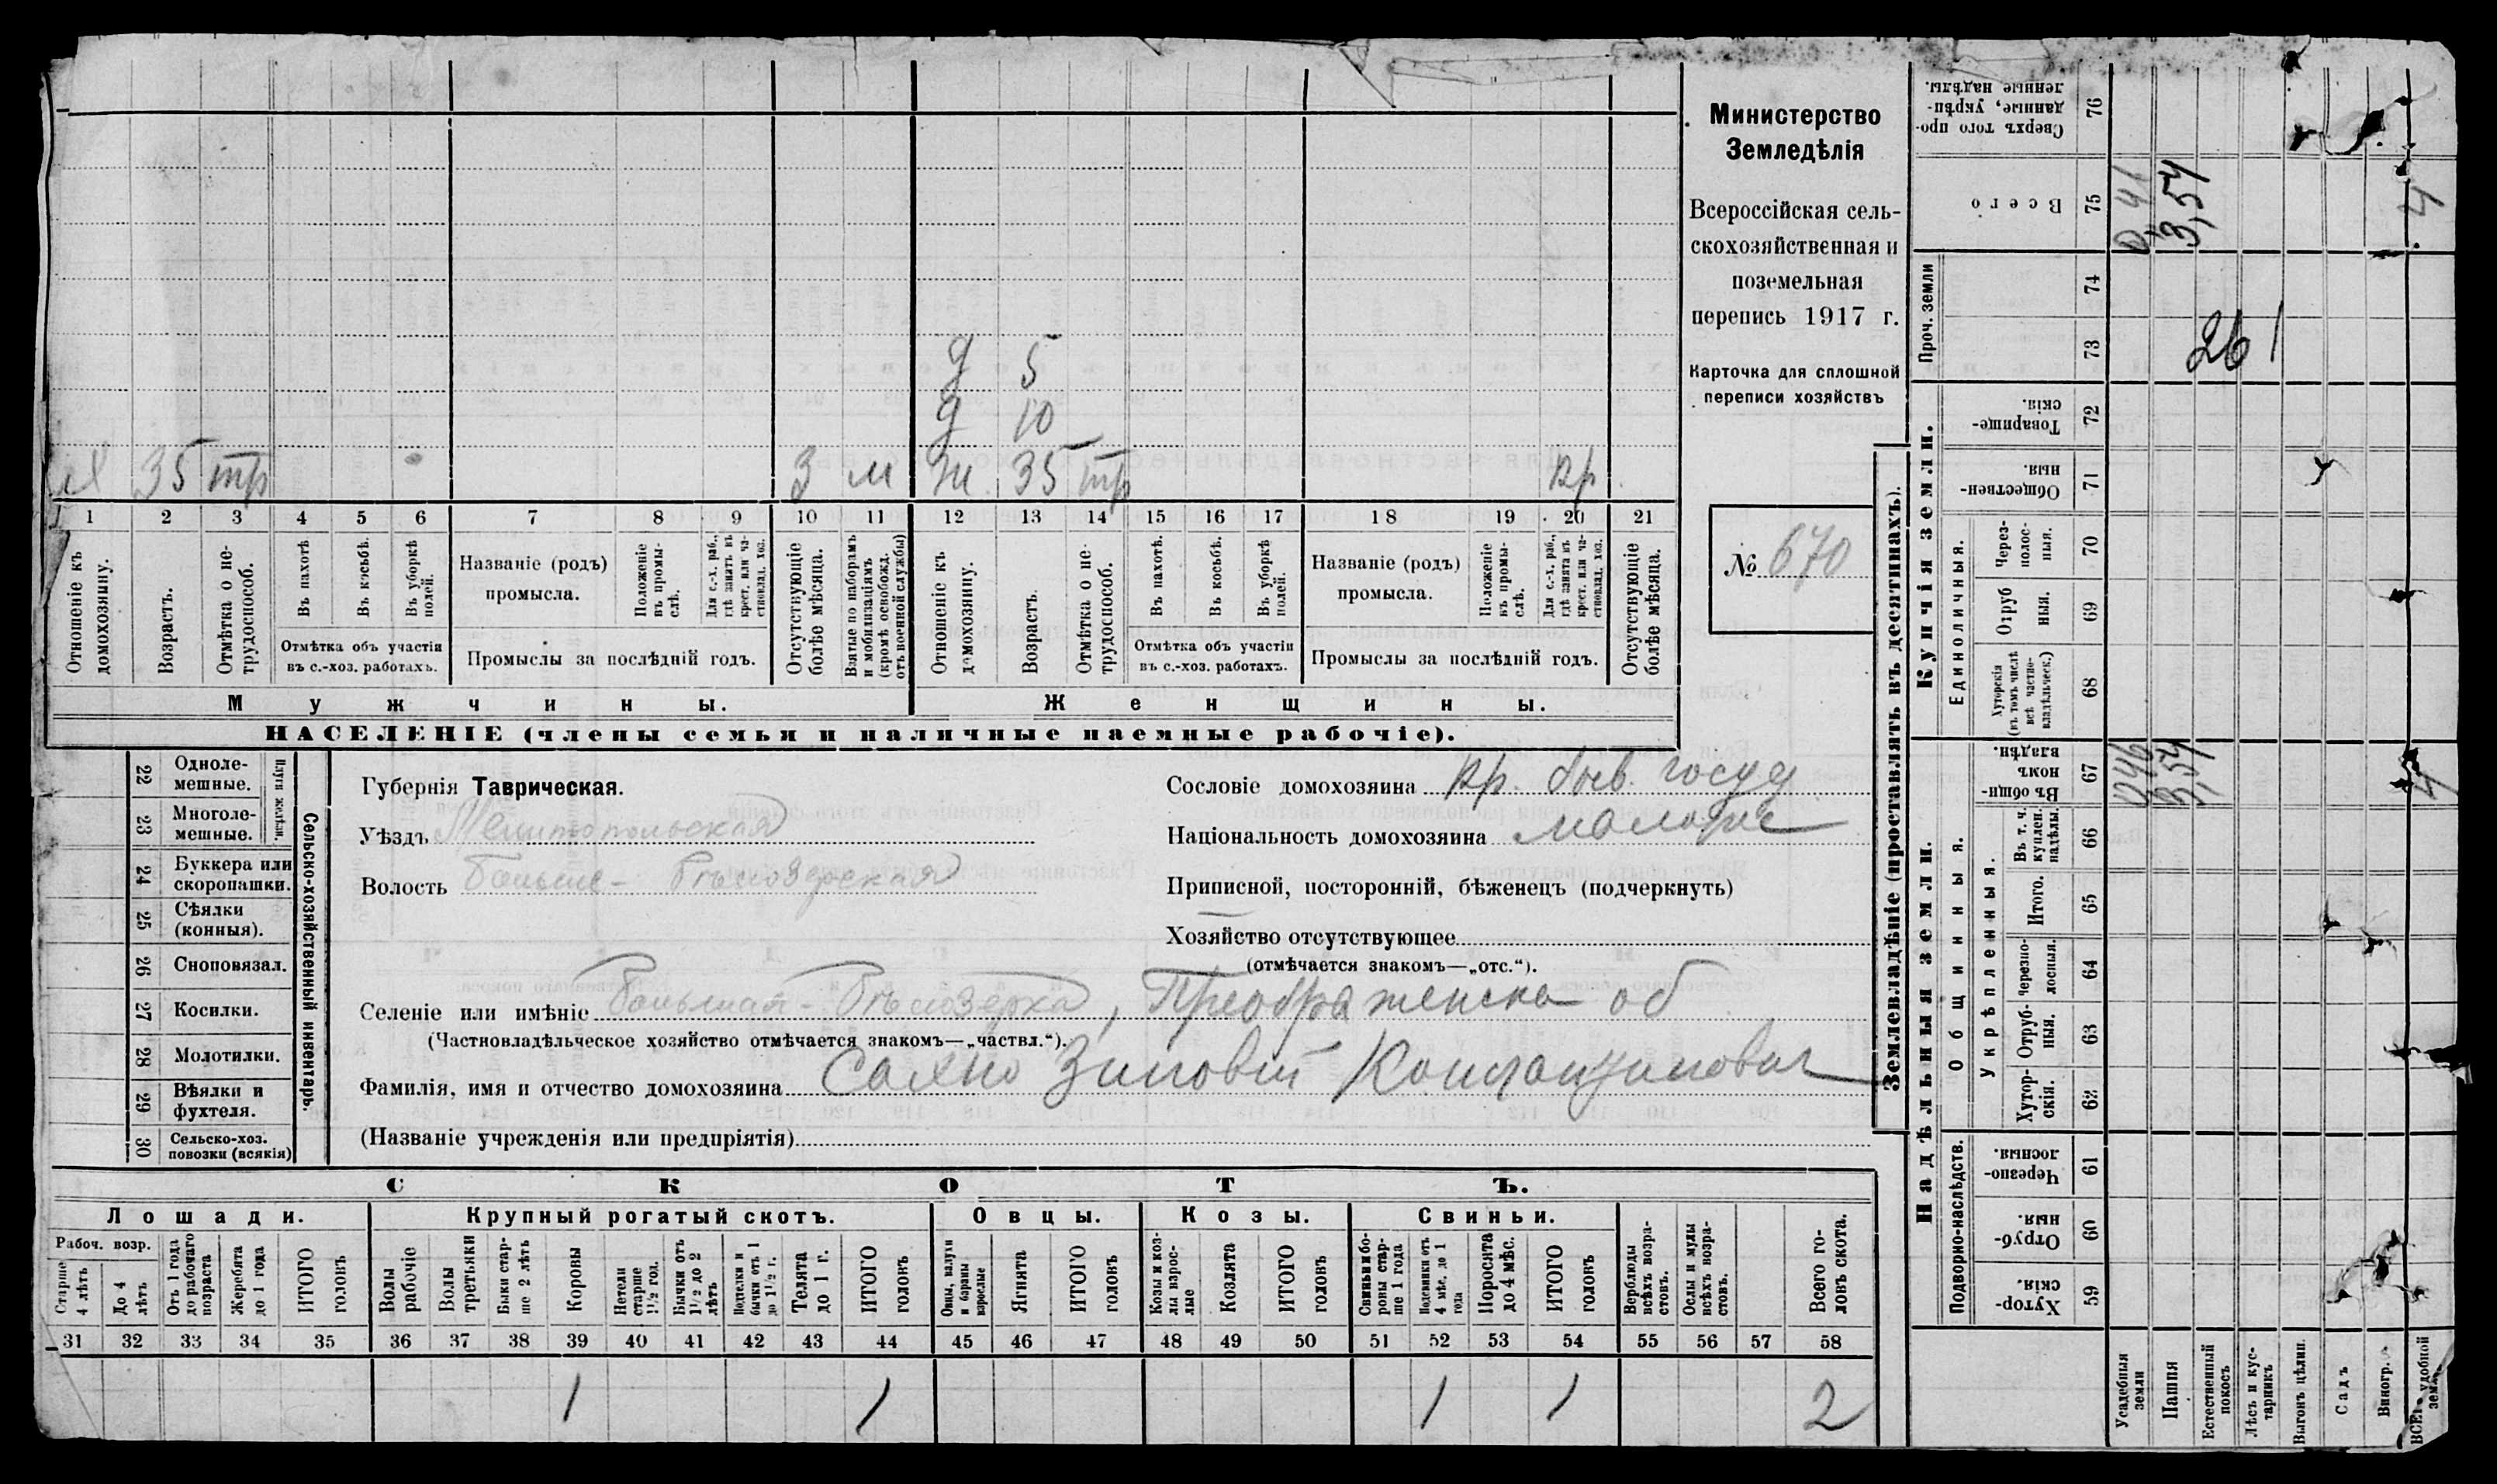 Министерство
Земледѣлія
Всероссійская сель-
скохозяйственная и
поземельная
перепись 1917 г.
Карточка для сплошной
переписи хозяйствъ
№ 670
д 5
д 10
х 35 тр 3 м ж 35 тр кр
1 2 3 4 5 6 7 8 9 10 11 12 13 14 15 16 17 18 19 20 21
Отношеніе къ домохозяину.
Возрастъ.
Отмѣтка о не-трудоспособ.
Въ пахотѣ
Въ косьбѣ.
Въ уборкѣ полей.
Отмѣтка объ участіи
въ с.-хоз. работахъ.
Названіе (родъ)
промысла.
Положеніе въ промы-слѣ.
Для с.-х. раб., гдѣ занятъ въ крест. или ча-стновлад. хоз.
Промыслы за послѣдній годъ.
Отсутствующіе болѣе мѣсяца.
Взятые по наборамъ и мобилизаціямъ (кромѣ освобожд. отъ военной службы)
Отношеніе къ домохозяину.
Возрастъ.
Отмѣтка о не-трудоспособ.
Въ пахотѣ.
Въ косьбѣ.
Въ уборкѣ полей.
Отмѣтка объ участіи
въ с.-хоз. работахъ.
Названіе (родъ)
промысла.
Положеніе въ промы-слѣ.
Для с.-х. раб., гдѣ занята въ крест. или ча-стновлад. хоз.
Промыслы за послѣдній годъ.
Отсутствующіе болѣе мѣсяца.
Мужчины.
Женщины.
НАСЕЛЕНІЕ (члены семьи и наличные наемные рабочіе).
Сельско-хозяйственный инвентарь.
Плуги желѣзн.
22 Одноле-
мешные.
23 Многоле-
мешные.
24 Буккера или
скоропашки.
25 Сѣялки
(конныя).
26 Сноповязал.
27 Косилки.
28 Молотилки.
29 Вѣялки и
фухтеля.
30 Сельско-хоз.
повозки (всякія)
Губернія Таврическая.
Уѣздъ Мелитопольская
Волость Больше-Бѣлозерская
Сословіе домохозяина кр. быв. госуд
Національность домохозяина малорос
Приписной, посторонній, бѣженецъ (подчеркнуть)
Хозяйство отсутствующее
(отмѣчается знакомъ—„отс.“).
Селеніе или имѣніе Большая-Бѣлозерка, Преображенска об
(Частновладѣльческое хозяйство отмѣчается знакомъ—„частвл.“).
Фамилія, имя и отчество домохозяина Сахно Зиновій Константинович
(Названіе учрежденія или предпріятія)
СКОТЪ.
Лошади.
Крупный рогатый скотъ.
Овцы.
Козы.
Свиньи.
Рабоч. возр.
Старше 4 лѣтъ
До 4 лѣтъ
Отъ 1 года до рабочаго возраста
Жеребята до 1 года
ИТОГО головъ
Волы рабочіе
Волы третьяки
Быки стар-ше 2 лѣтъ
Коровы
Нетели старше 1½ год.
Бычки отъ 1½ до 2 лѣтъ
Подтелки и бычки отъ 1 до 1½ г.
Телята до 1 г.
ИТОГО головъ
Овцы, валухи и бараны взрослые
Ягнята
ИТОГО головъ
Козы и коз-лы взрос-лые
Козлята
ИТОГО головъ
Свиньи и бо-ровы стар-ше 1 года
Подсвинки отъ 4 мѣс. до 1 года
Поросята до 4 мѣс.
ИТОГО головъ
Верблюды всѣхъ возра-стовъ.
Ослы и мулы всѣхъ возра-стовъ.
Всего го-ловъ скота.
31 32 33 34 35 36 37 38 39 40 41 42 43 44 45 46 47 48 49 50 51 52 53 54 55 56 57 58
1 1 1 1 2
Землевладѣніе (проставлять въ десятинахъ).
Надѣльныя земли.
Купчія земли.
Проч. земли
Сверхъ того про-данные, укрѣп-ленные надѣлы. 76
Всего 75 0,41 3,54 4
74
73 261
Товарище-скія. 72
Обществен-ныя. 71
Единоличныя.
Через-полос-ныя. 70
Отруб ныя. 69
Хуторскія (въ томъ числѣ всѣ частно-владѣльческ.) 68
Общинныя.
Въ общи-номъ владѣн. 67 046 3,54 4
Укрѣпленныя.
Въ т. ч. куплен. надѣлы. 66
Итого. 65
Черезпо-лосныя. 64
Отруб-ныя. 63
Хутор-скія. 62
Подворно-наслѣдств.
Черезпо-лосныя. 61
Отруб-ныя. 60
Хутор-скія. 59
Усадебныя земли
Пашня
Естественный покосъ
Лѣсъ и кус-тарникъ
Выгонъ цѣлин.
Садъ
Виногр.
ВСЕГО удобной земли